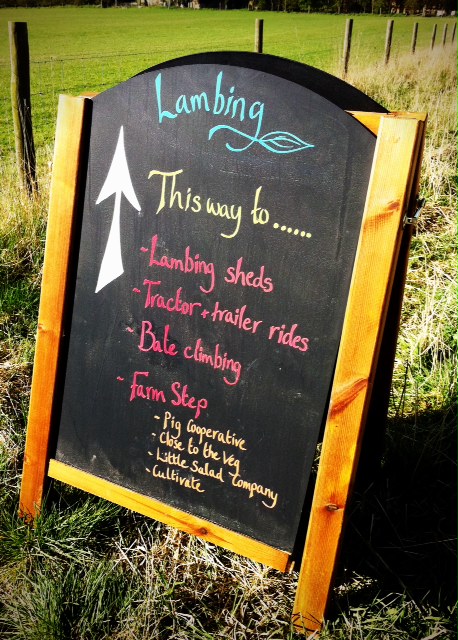 Lambing
This way to......
- Lambing sheds
- Tractor + trailer rides
- Bale climbing
- Farm Step
- Pig Cooperative
- Close to the Veg
- Little Salad Company
- Cultivate